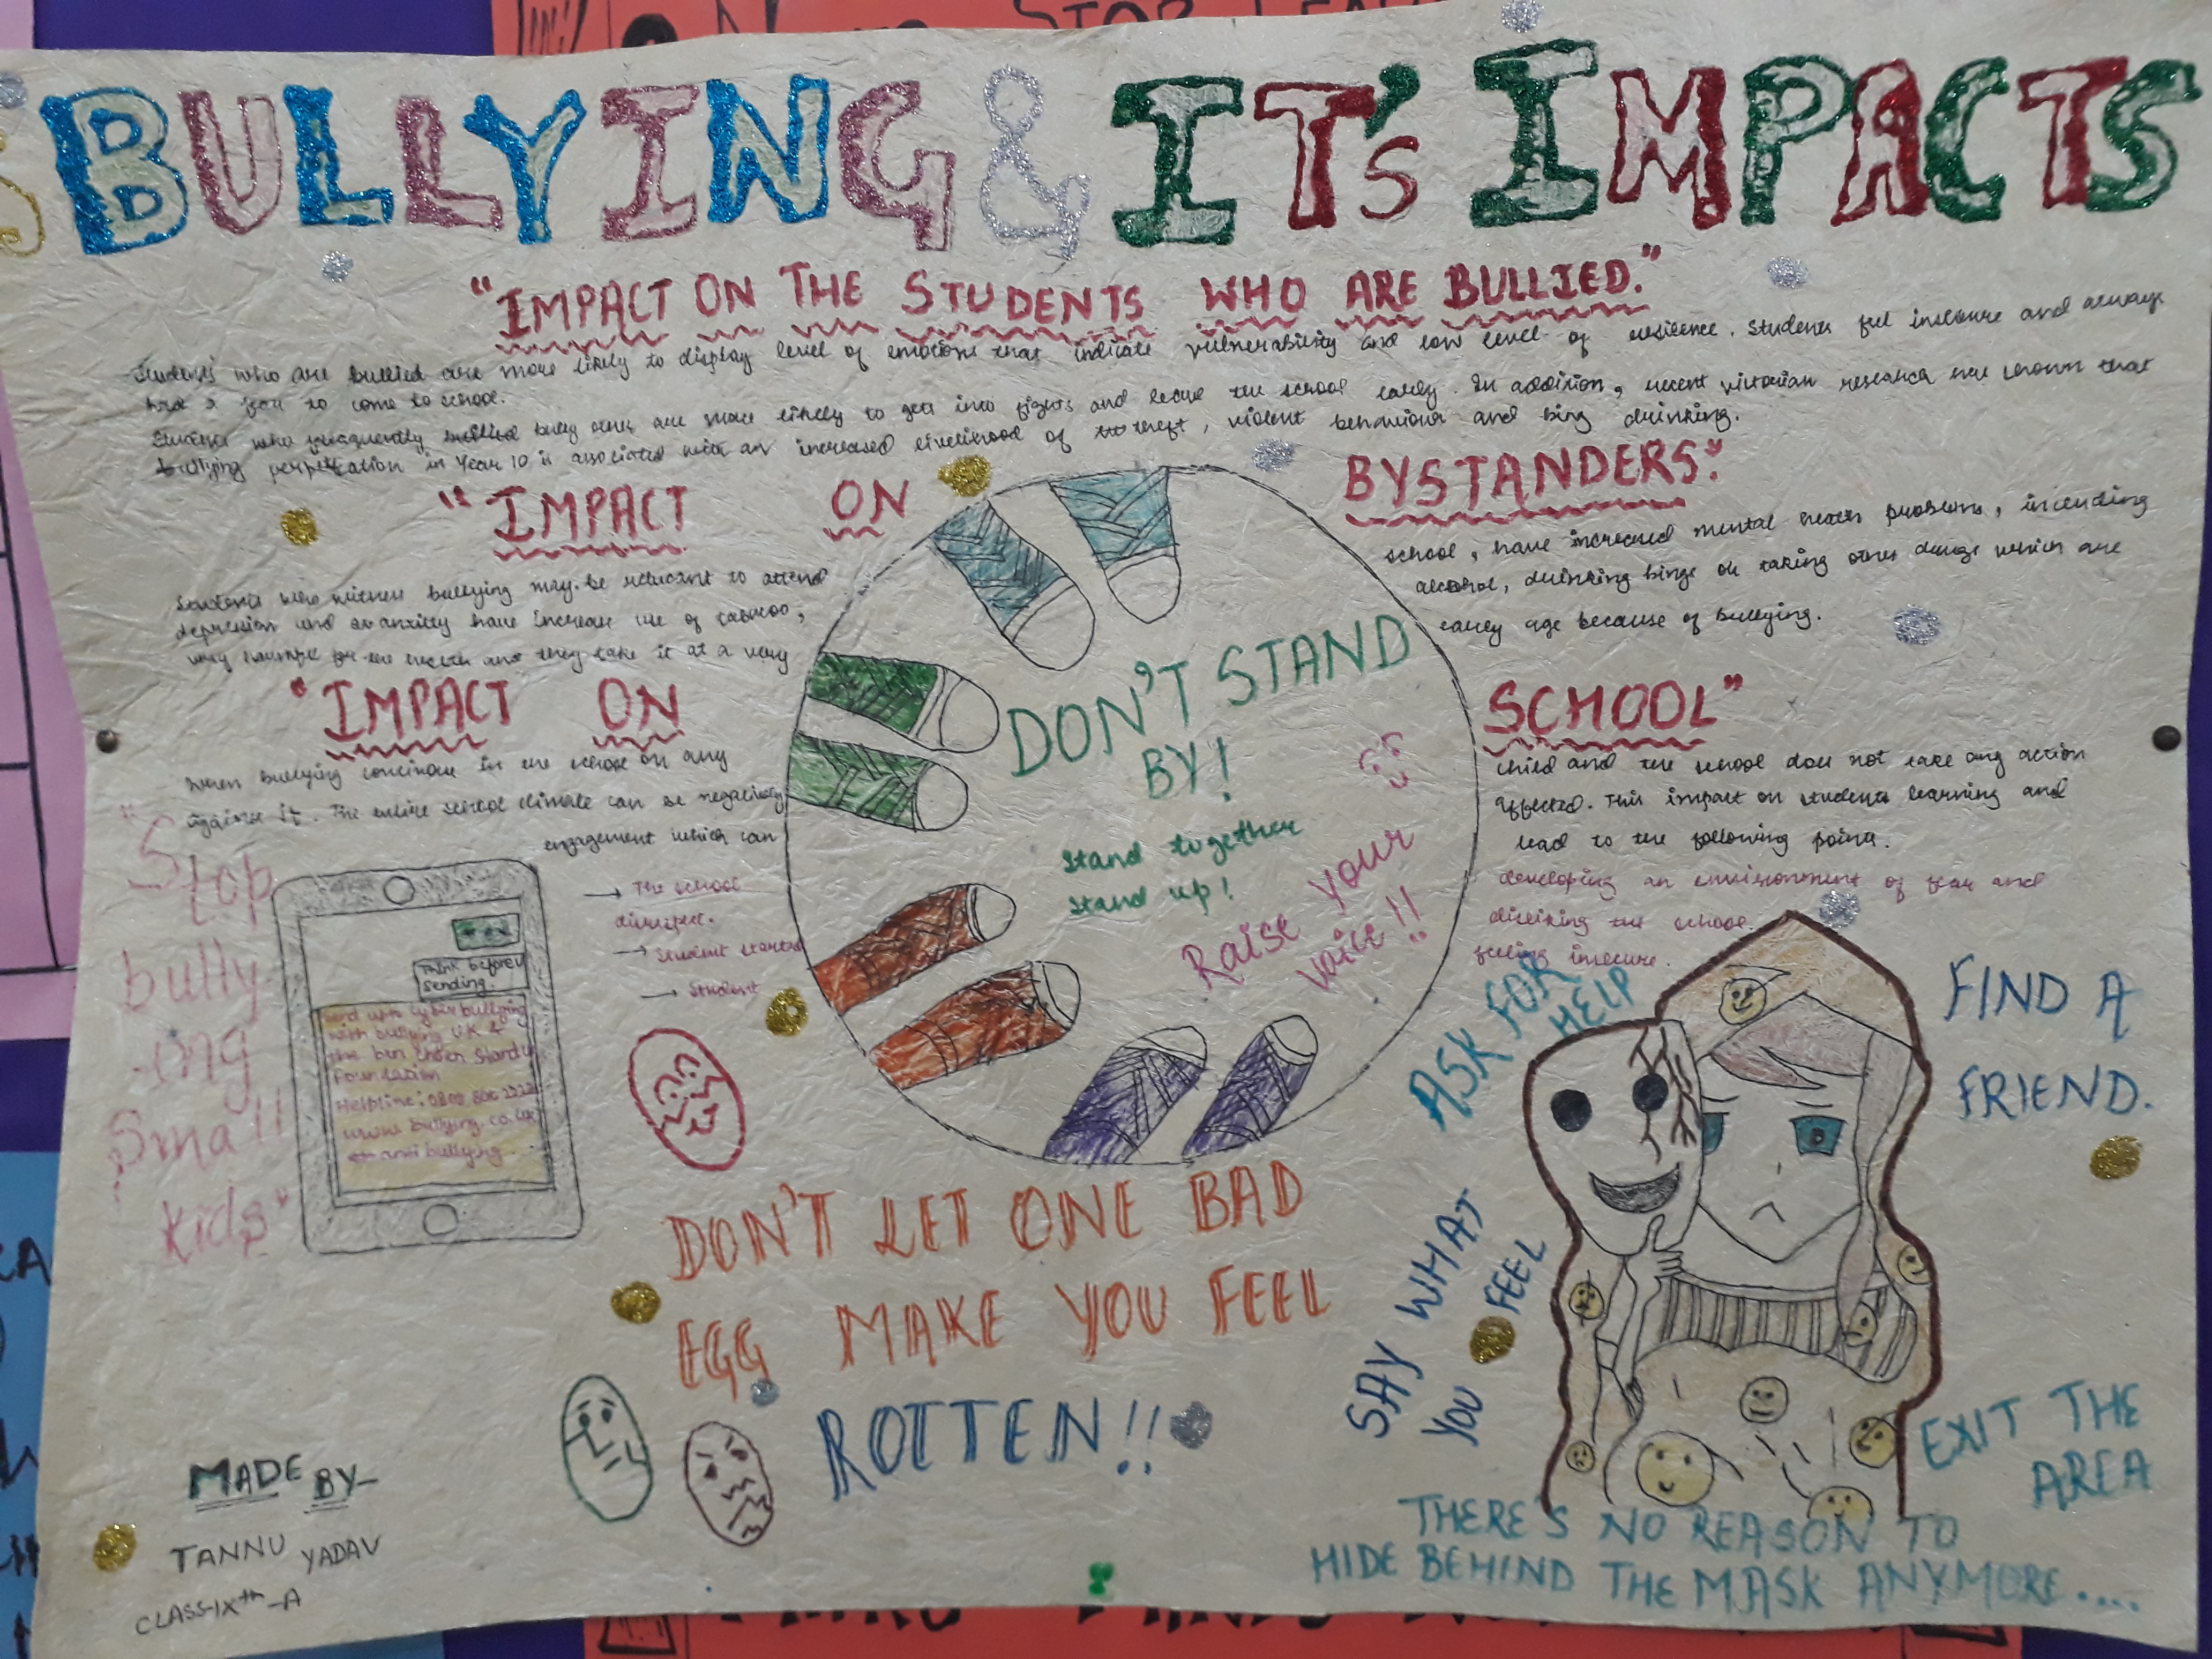 BULLYING & IT'S IMPACTS
"IMPACT ON THE STUDENTS WHO ARE BULLIED."
Students who are bullied are more likely to display level of emotions that indicate vulnerability and low level of resilience. Students feel insecure and always
had a fear to come to school.
Students who frequently bully others are more likely to gets into fights and leave the school early. In addition, recent victorian research have shown that
bullying perpetration in Year 10 is associated with an increased likelihood of theft, violent behaviour and bing drinking.
"IMPACT ON BYSTANDERS."
Students who witness bullying may be reluctant to attend school, have increased mental health problems, including
depression and anxiety have increase use of tabacoo, alcohol, drinking binge or taking other drugs which are
very harmful for the health and they take it at a very early age because of bullying.
"IMPACT ON SCHOOL"
When bullying continue in the school on any child and the school does not take any action
against it. The entire school climate can be negatively affected. This impact on students learning and
engagement which can lead to the following points.
→ The school developing an environment of fear and
disrespect.
→ Student started disliking the school.
→ Student feeling insecure.
DON'T STAND
BY!
Stand together
Stand up!
Raise your
voice!!
"Stop
bully
-ing
Small
kids"
Think before
sending.
cyberbullying
with bullying U.K &
the ben cohen Standup
Foundation
Helpline:
www.bullying.co.uk
anti bullying
DON'T LET ONE BAD
EGG MAKE YOU FEEL
ROTTEN!!
ASK FOR
HELP
FIND A
FRIEND.
SAY WHAT
YOU FEEL
EXIT THE
AREA
THERE'S NO REASON TO
HIDE BEHIND THE MASK ANYMORE....
MADE BY-
TANNU YADAV
CLASS-IXth-A